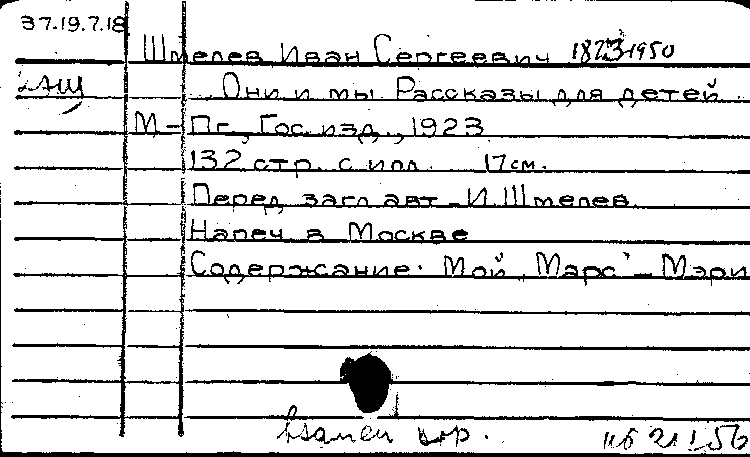 37.19.7.18
Шмелев, Иван Сергеевич 1873-1950
Они и мы. Рассказы для детей.
М-Пг., Гос. изд., 1923
132 стр. с илл. 17 см.
Перед загл. авт - И. Шмелев
Напеч. в Москве
Содержание: Мой „Марс“ - Мэри
Взамен кор.